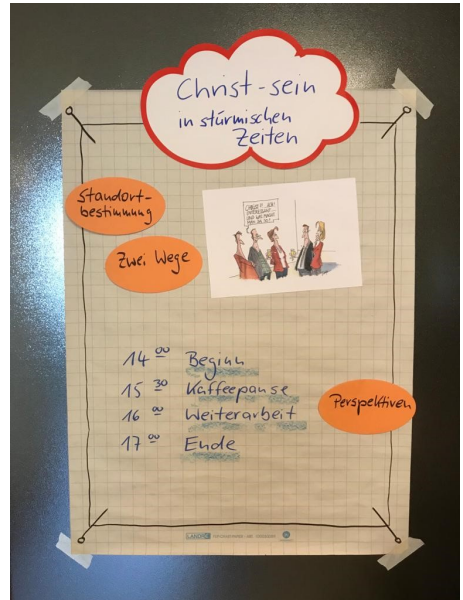 Christ-sein
in stürmischen
Zeiten
Standort-
bestimmung
Zwei Wege
14 00 Beginn
15 30 Kaffeepause
16 00 Weiterarbeit
17 00 Ende
Perspektiven